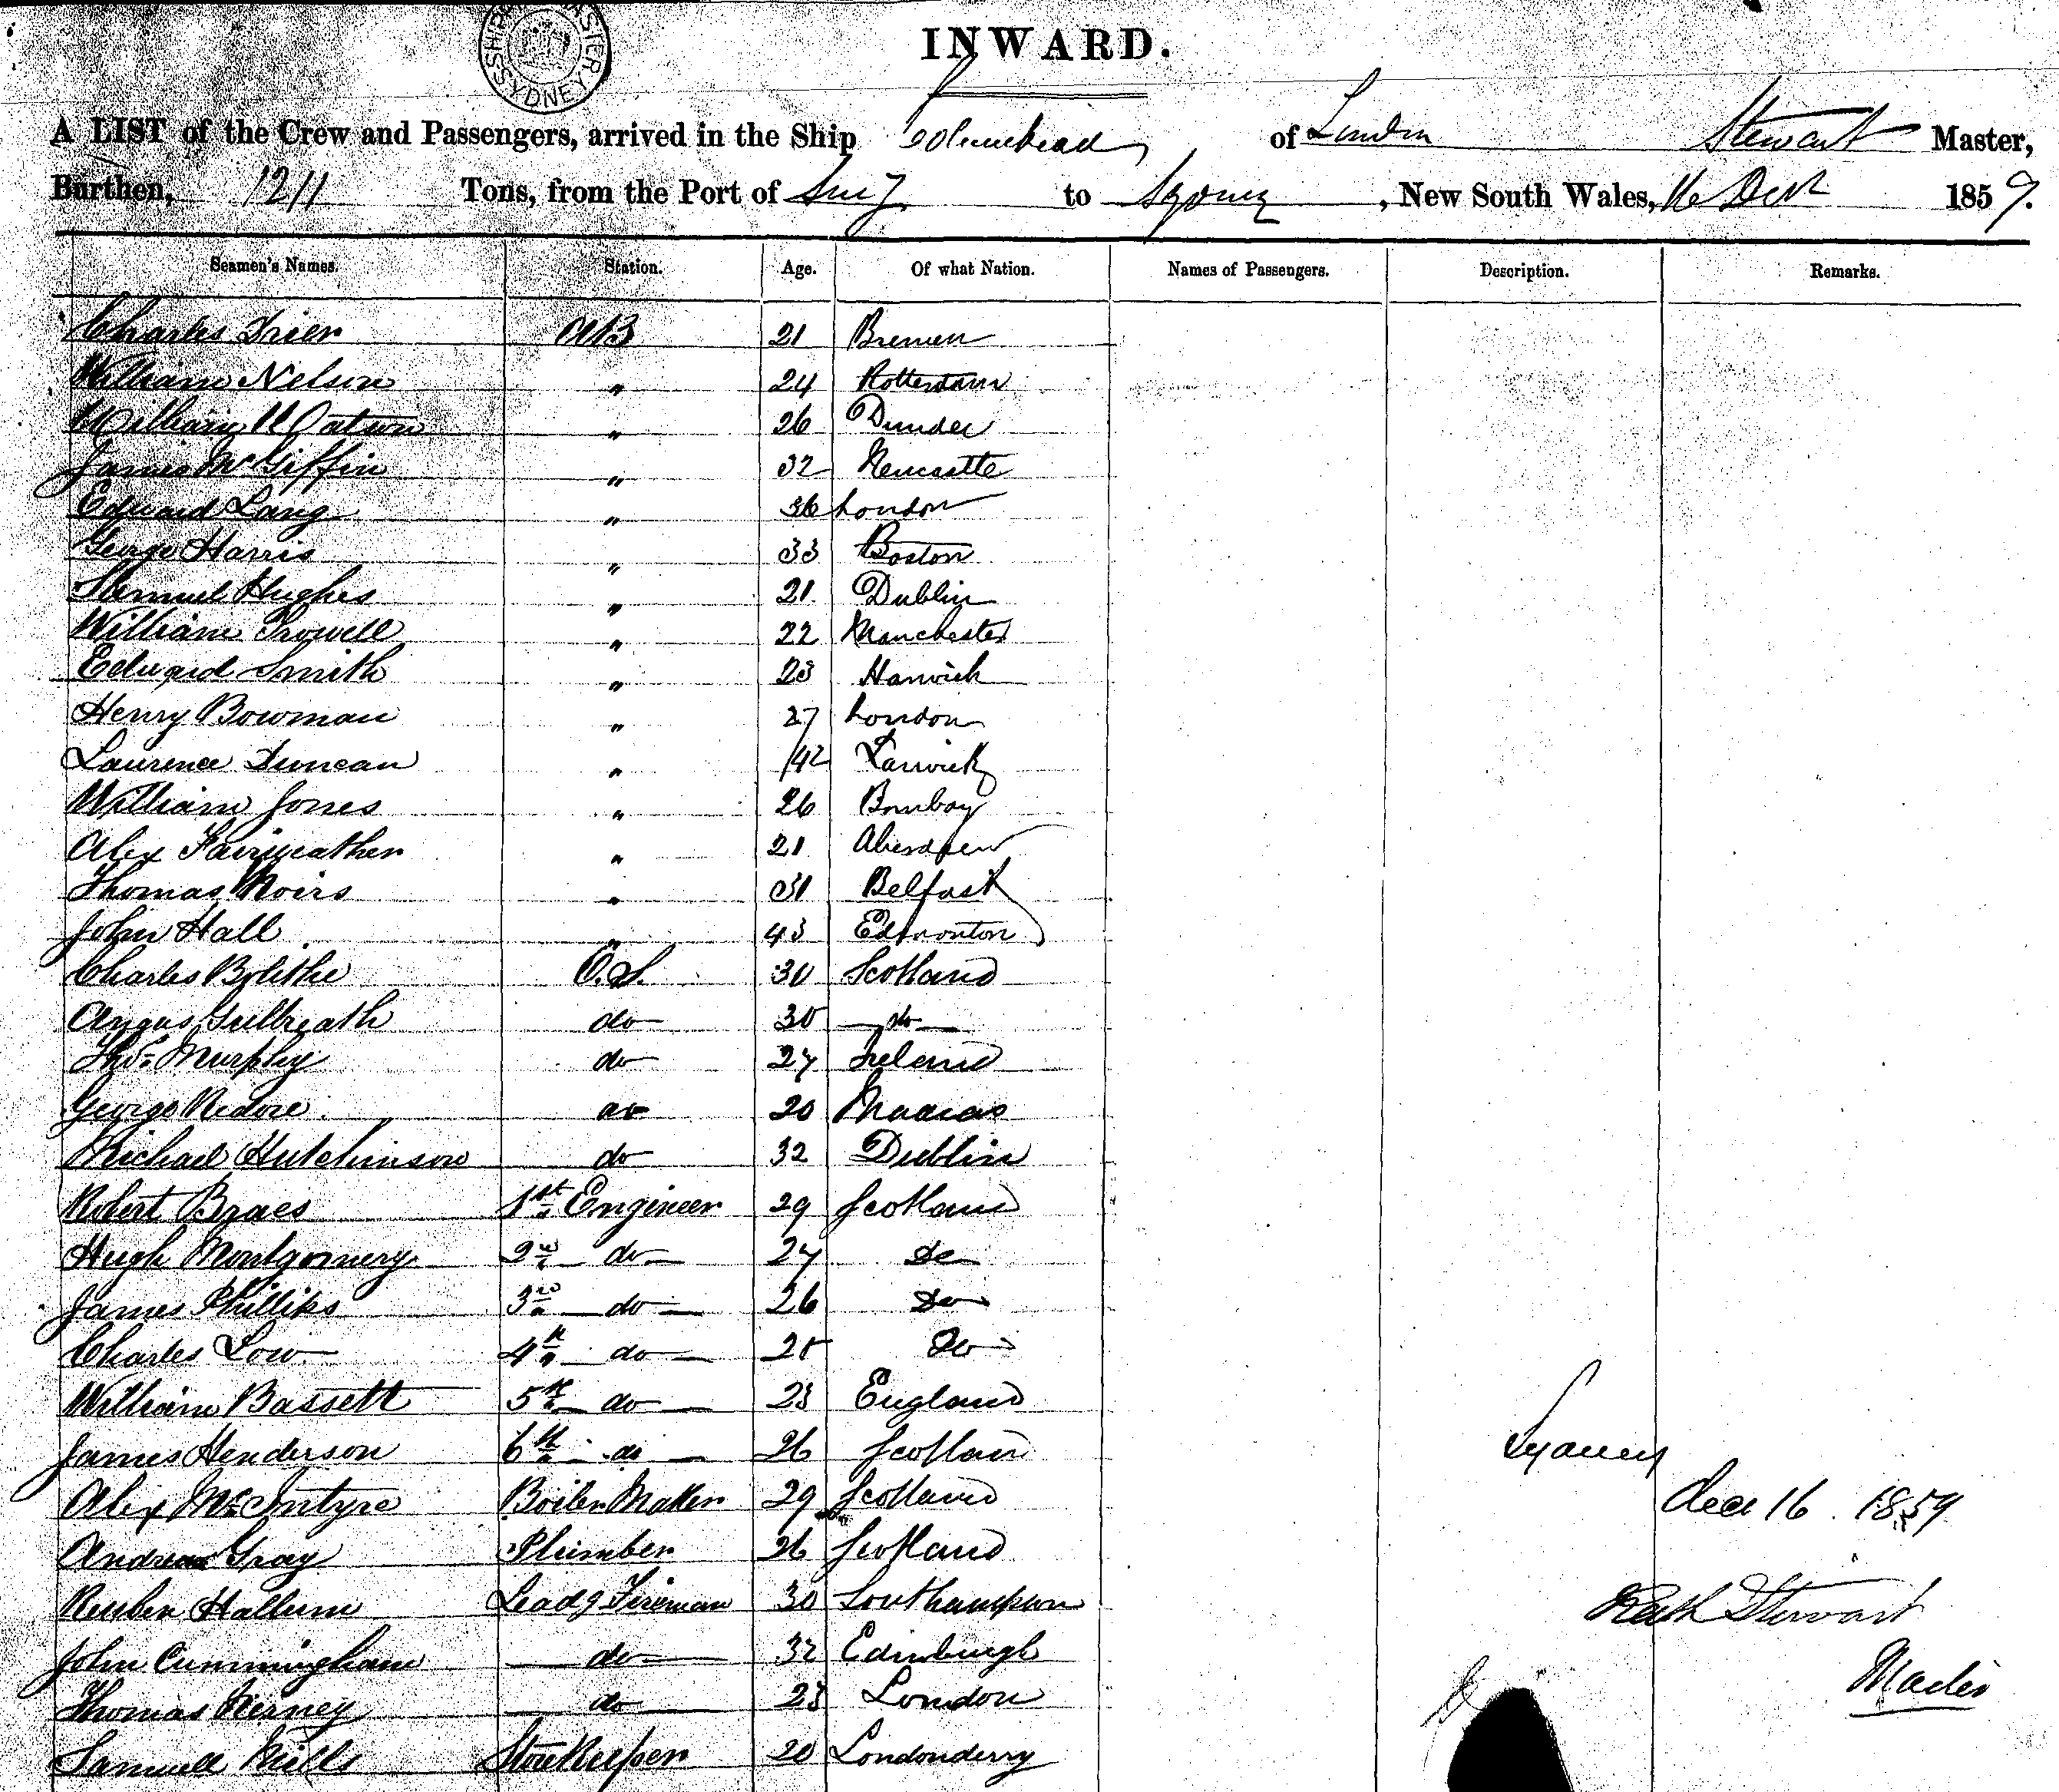 SHIPPING MASTER SYDNEY
INWARD.
A LIST of the Crew and Passengers, arrived in the Ship of London Stewart Master,
Burthen, 1211 Tons, from the Port of Suez to Sydney, New South Wales, 16 Decr 1859.
Seamen's Names. Station. Age. Of what Nation. Names of Passengers. Description. Remarks.
Charles Trier AB 21 Bremen
William Nelson " 24 Rotterdam
William Watson " 26 Dundee
James McGiffin " 32 Newcastle
Edward Lang " 36 London
George Harris " 33 Boston
Samuel Hughes " 21 Dublin
William Trowell " 22 Manchester
Edward Smith " 23 Harwich
Henry Bowman " 27 London
Laurence Duncan " 42 Larwick
William Jones " 26 Bombay
Alex Fairweather " 21 Aberdeen
Thomas Moirs " 31 Belfast
John Hall " 43 Edmonton
Charles Blithe O.S. 30 Scotland
Angus Gulbreath do 30 do
Thos Murphy do 27 Ireland
George do 20 Madras
Richard Hutchinson do 32 Dublin
Robert Braes 1st Engineer 29 Scotland
Hugh Montgomery 2nd do 27 Do
James Phillips 3rd do 26 Do
Charles Low 4th do 25 Do
William Bassett 5th do 23 England
James Henderson 6th do 26 Scotland
Alex McIntyre Boiler Maker 29 Scotland
Andrew Gray Plumber 26 Scotland
Reuben Hallum Leadg Fireman 30 Southampton
John Cunningham do 32 Edinburgh
Thomas Kerney do 28 London
Samuel Mills Storekeeper 20 Londonderry
Sydney
Dec 16. 1859
Stewart
Master